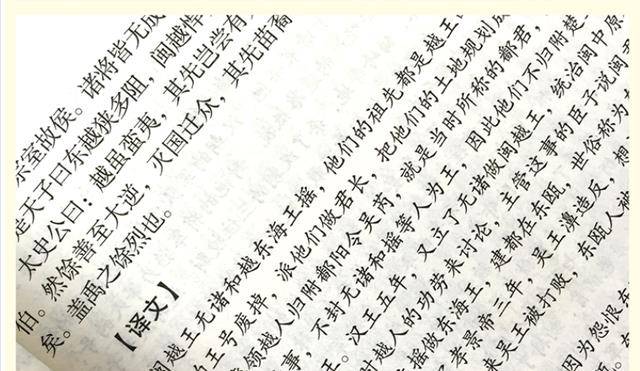 宗室故侯。诸将皆无成
是天子曰东越狭多阻，闽越悍
太史公曰：越虽蛮夷，其先岂尝有
伯。然馀善至大逆，灭国迁众，其先苗裔
矣。盖禹之馀烈也。
【译文】
闽越王无诸和越东海王摇，他们的祖先都是越王
的王号废掉，派他们做君长，把他们的土地规划成
率领越人归附鄱阳令吴芮，就是当时所称的鄱君，
事，不封无诸和摇等人为王，因此他们不归附楚
王。汉王五年，又立了无诸做闽越王，统治闽中原
时越人的功劳来讨论，主管这事的臣子说闽君
摇做东海王，建都在东瓯，世俗称为
孝景帝三年，吴王濞造反，想
来吴王被打败，东瓯人被
因为怨恨东